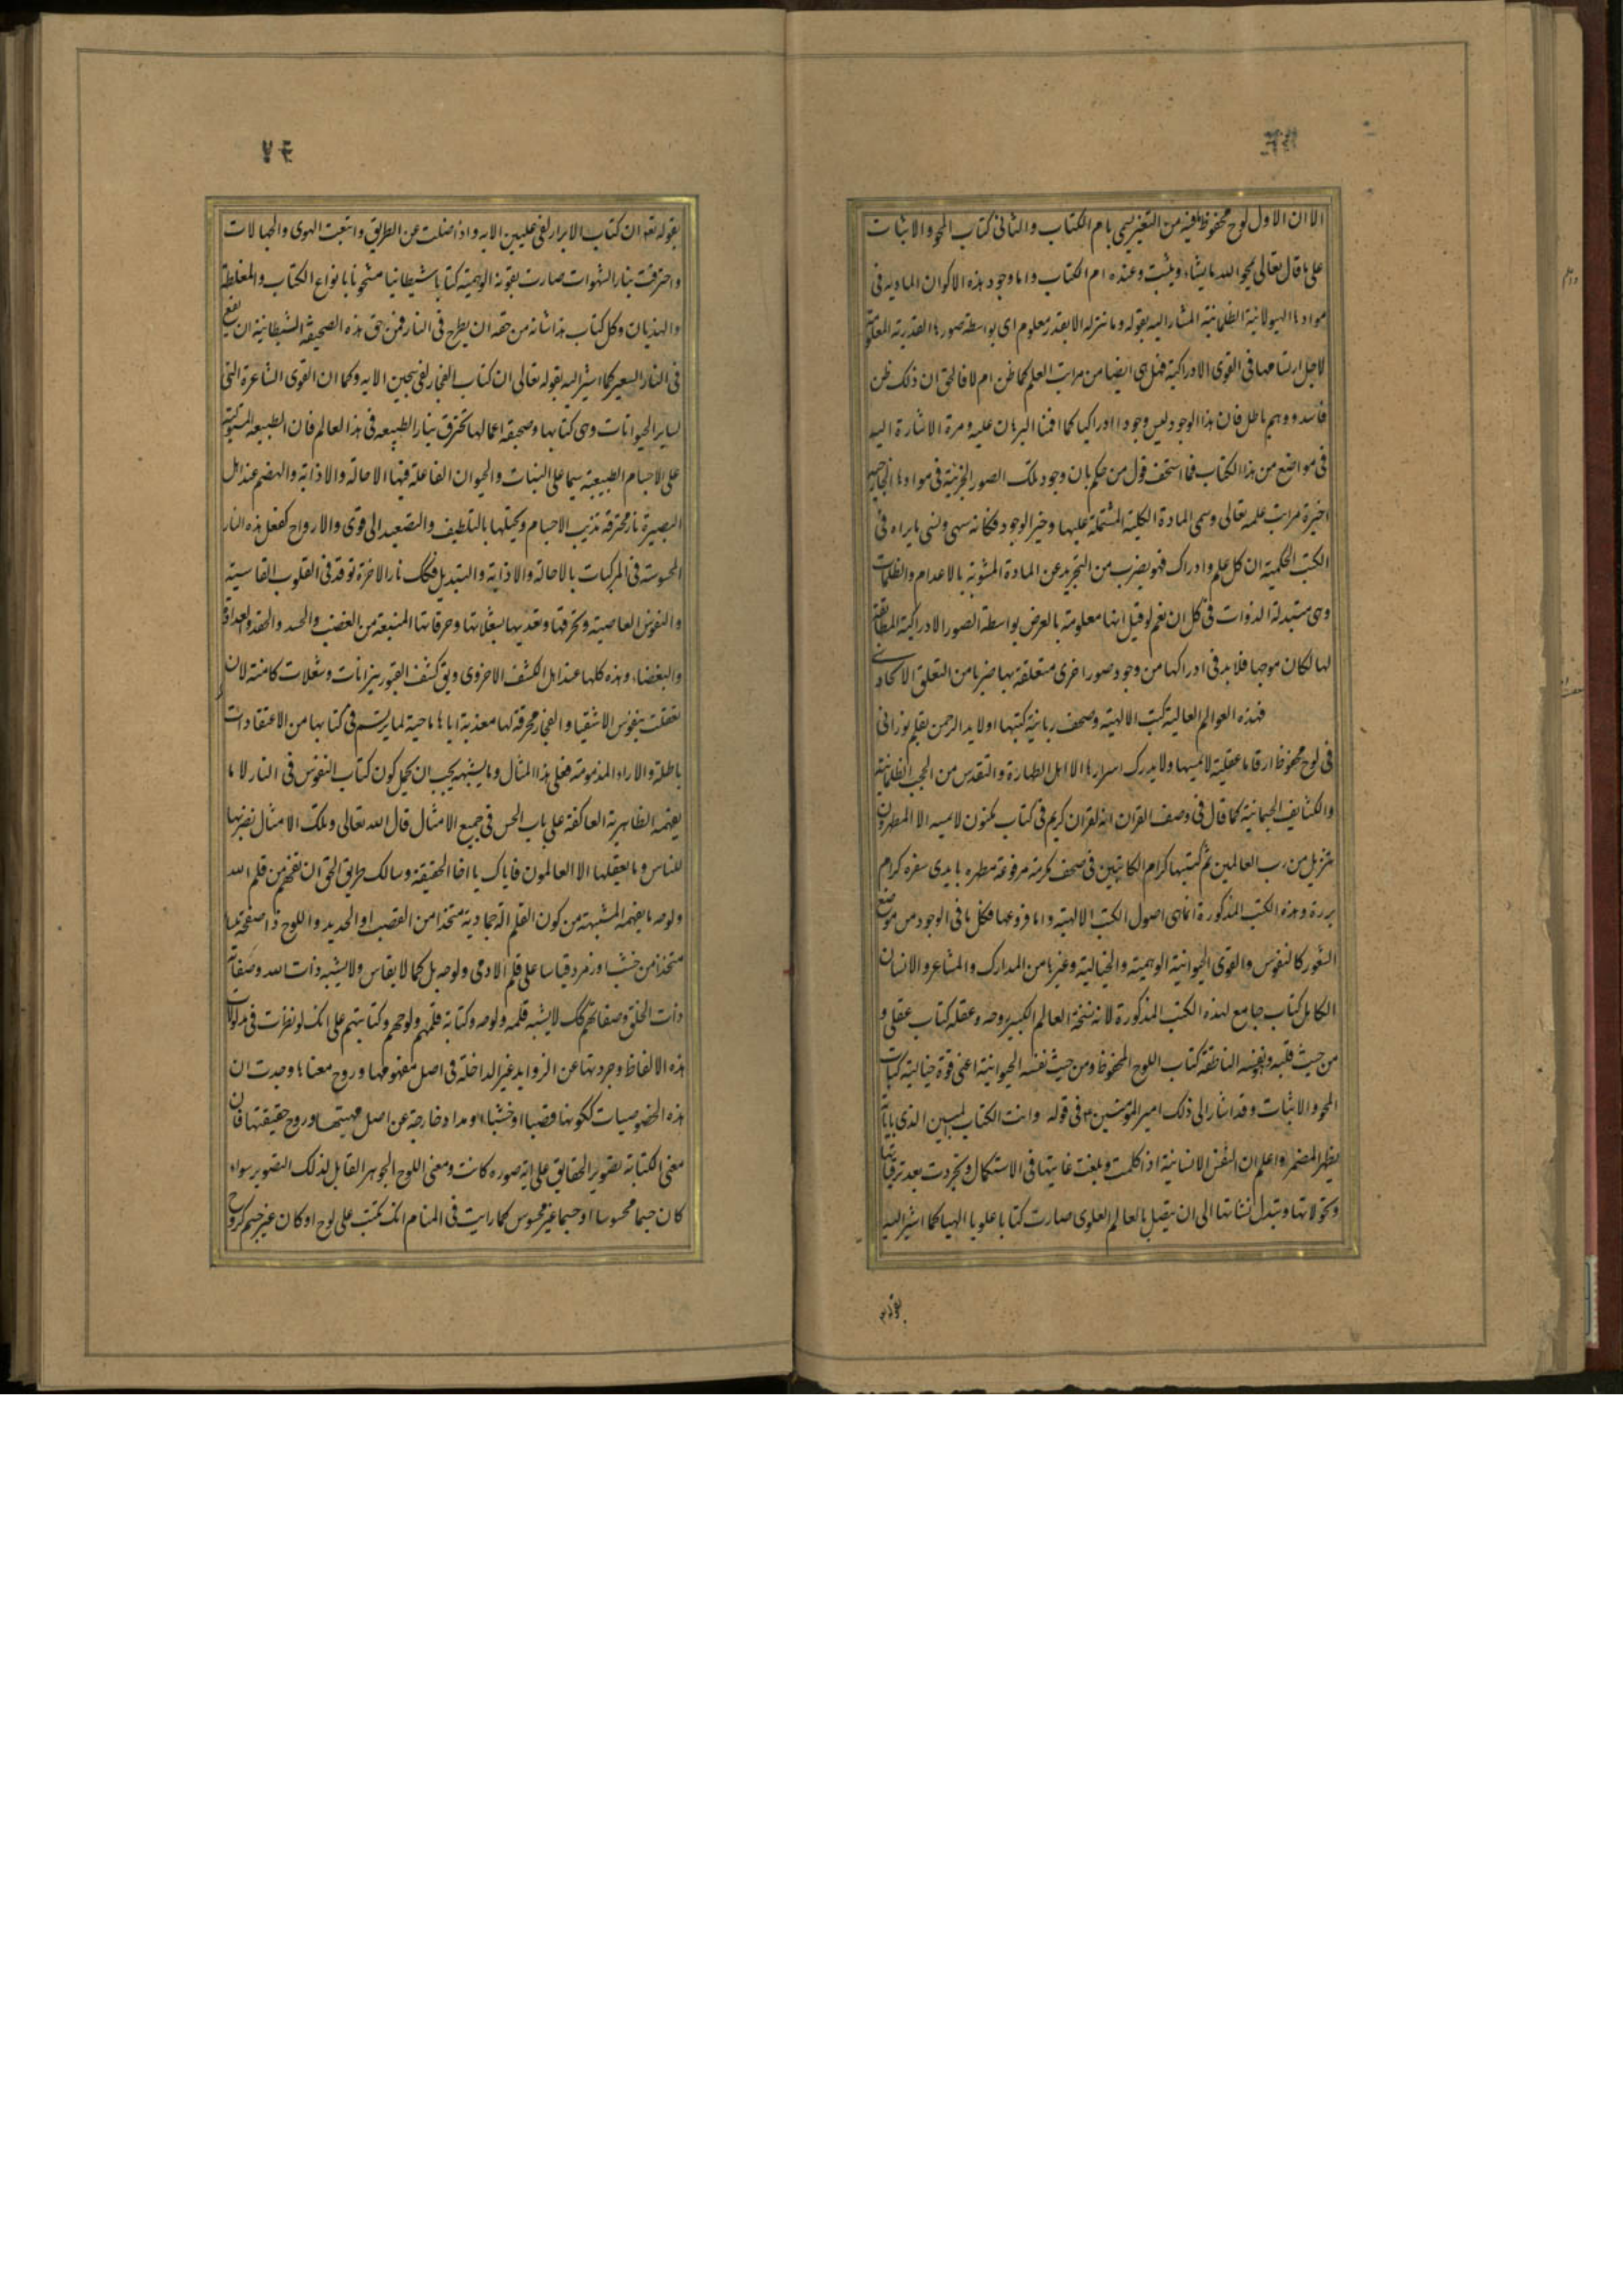 الا ان الاول لوح محفوظ بعينه من التغير يسمى بام الكتاب والثانى كتاب المحو والاثبات
على ما قال تعالى يمحو الله ما يشاء ويثبت وعنده ام الكتاب واما وجود هذه الاكوان الماديه فى
موادها الهيولانية الظلمانية المشار اليه بقوله وما ننزله الا بقدر معلوم اى بواسطة صورها القدرية المعلومة
لاجل ارتسامها فى القوى الادراكية فهل هى ايضا من مراتب العلم كما ظن ام لا فالحق ان ذلك ظن
فاسد ووهم باطل فان هذا الوجود ليس وجودا ادراكيا كما اقمنا البرهان عليه ومرة الاشارة اليه
فى مواضع من هذا الكتاب فما استخف قول من حكم بان وجود تلك الصور الجزئية فى موادها الخارجية
اخيرة مراتب علمه تعالى وسمى المادة الكلية المشتملة عليها دفتر الوجود فكانه سهى ونسى ما يراه فى
الكتب الحكمية ان كل علم وادراك فهو بضرب من التجريد عن المادة المشوبة بالاعدام والظلمات
وهى متبدلة الذوات فى كل ان نعم لو قيل انها معلومة بالعرض بواسطة الصور الادراكية المطابقة
لها لكان موجها فلا بد فى ادراكها من وجود صور اخرى متعلقة بها ضربا من التعلق الاتحادى
فهذه العوالم العالية كتب الالهية وصحف ربانية كتبها اولا يد الرحمن بقلم نورانى
فى لوح محفوظ ارقاما عقلية لا يمسها ولا يدرك اسرارها الا اهل الطهارة والتقدس من الحجب الظلمانية
والكثايف الجسمانية كما قال فى وصف القران انه لقران كريم فى كتاب مكنون لا يمسه الا المطهرون
تنزيل من رب العالمين ثم كتبها كرام الكاتبين فى صحف مكرمة مرفوعة مطهره بايدى سفره كرام
بررة وهذه الكتب المذكورة انما هى اصول الكتب الالهية واما فروعها فكل ما فى الوجود من موضع
الشعور كالنفوس والقوى الحيوانية الوهمية والخيالية وغيرها من المدارك والمشاعر والانسان
الكامل كتاب جامع لهذه الكتب المذكورة لانه نسخة العالم الكبير وروحه وعقله كتاب عقلى و
من حيث قلبه ونفسه الناطقة كتاب اللوح المحفوظ ومن حيث نفسه الحيوانية اعنى قوة خيالية كتاب
المحو والاثبات وقد اشار الى ذلك امير المؤمنين ع فى قوله وانت الكتاب لمبين الذى باياته
يظهر المضمر واعلم ان النفس الانسانية اذا كلمت وبلغت غايتها فى الاستكمال وتجردت بعد ترقياتها
وتحولاتها وتبدل نشاتها الى ان يتصل بالعالم العلوى صارت كتابا علويا الهيا كما اشير اليه
بقوله تعالى
بقوله تعه ان كتاب الابرار لفى عليين الايه واذا ضلت عن الطريق واتبعت الهوى والجهالات
واحترقت بنار الشهوات صارت بقوته الوهمية كتابا شيطانيا مشحونا بانواع الكتاب والمغلطة
والهذيان وكل كتاب هذا شانه من حقه ان يطرح فى النار فمن حق هذه الصحيفة الشيطانية ان يقع
فى النار السعير كما اشير اليه بقوله تعالى ان كتاب الفجار لفى سجين الايه وكما ان القوى الشاعرة التى
لساير الحيوانات وهى كتابها وصحيفة اعمالها تحترق بنار الطبيعه فى هذا العالم فان الطبيعه المستولية
على الاجسام الطبيعية سيما على النبات والحيوان الفاعلة فيها الاحالة والاذابة والهضم عند اهل
البصيرة نار محترقة تذيب الاجسام وتحيلها بالتلطيف والتصعيد الى قوى والارواح كفعل هذه النار
المحسوسة فى المركبات بالاحالة والاذابة والتبديل فكك نار الاخرة توقد فى القلوب القاسية
والنفوس العاصية وتحرقها وتعذبها بشعلاتها وحرقاتها المنبعثة من الغضب والحسد والحقد والعداوة
والبغضاء وهذه كلها عند اهل الكشف الاخروى ويق كشف القبور نيرانات وشعلات كامنة لان
تعقلت بنفوس الاشقياء والفجار محرقة لها معذبة اياها ماحية لما يرتسم فى كتابها من الاعتقادات
باطلة والاراء المذمومة فعلى هذا المثال وما يشبهه يجب ان يحمل كون كتاب النفوس فى النار لا ما
يفهمه الظاهرية العاكفة على باب الحس فى جميع الامثال قال الله تعالى وتلك الامثال نضربها
للناس وما يعقلها الا العالمون فاياك يا اخا الحقيقة وسالك طريق الحق ان تفهم من قلم الله
ولوحه ما يفهمه المشبهة من كون القلم الة جمادية متخذا من القصب او الحديد واللوح ذا صفحة ملسا
متخذا من خشب او زمرد قياسا على قلم الادمى ولوحه بل كما لا يقاس ولا يشبه ذات الله وصفاته
ذات الخلق وصفاتهم كك لا يشبه قلمه ولوحه وكتابه قلمهم ولوحهم وكتابتهم على انك لو نظرت فى مدلولات
هذه الالفاظ وجردتها عن الزوايد غير الداخلة فى اصل مفهومها وروح معناها وجدت ان
هذه الخصوصيات ككونها قصبا او خشبا او مدادا خارجة عن اصل مهيتها وروح حقيقتها فان
معنى الكتابة تصوير الحقايق على اية صوره كانت ومعنى اللوح الجوهر القابل لذلك التصوير سواء
كان جسما محسوسا او جسما غير محسوس كما رايت فى المنام انك تكتب على لوح او كان غير جسم كروح